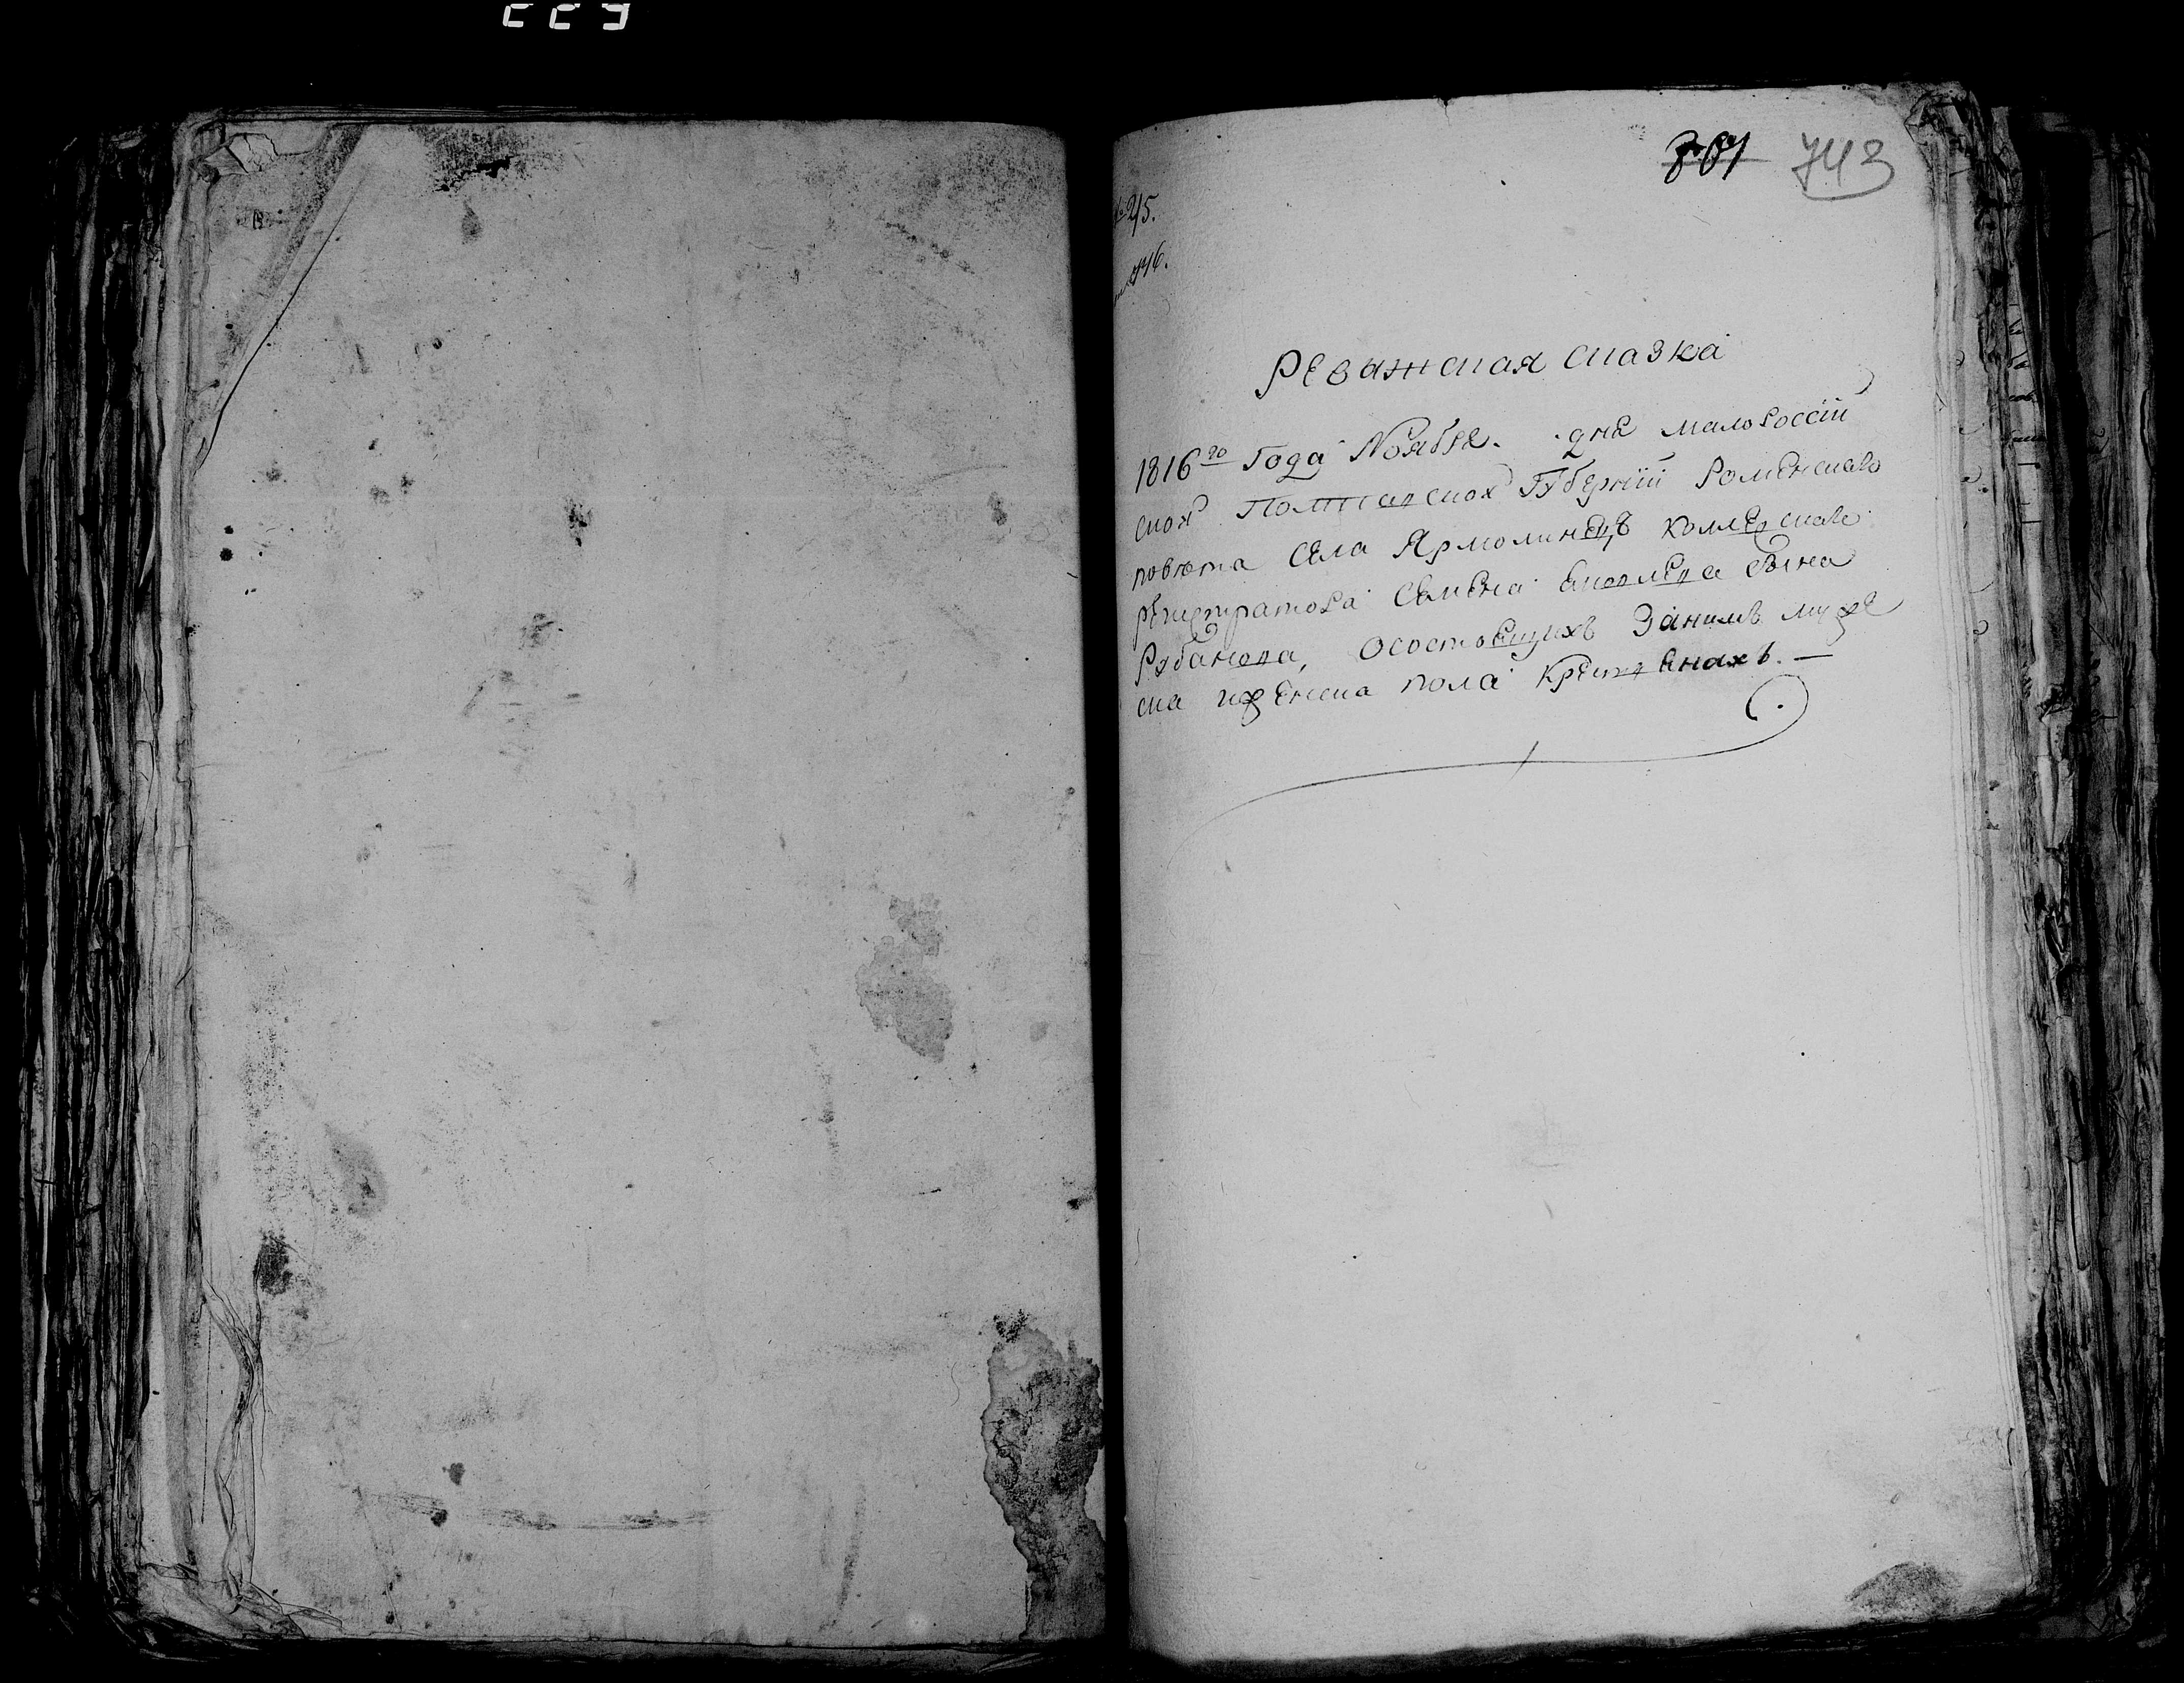 743
№ 245.
746.
Ревижская сказка
1816го Года Ноября. дня малороссій
ской Полтавской Губерніи Роменскаго
повѣта Села Ярмолинецъ коллезскаго
регистратора Семена Яковлева сына
Рубанова, о состоящихъ Занимъ муже
ска иженска пола Крестьянахъ. —